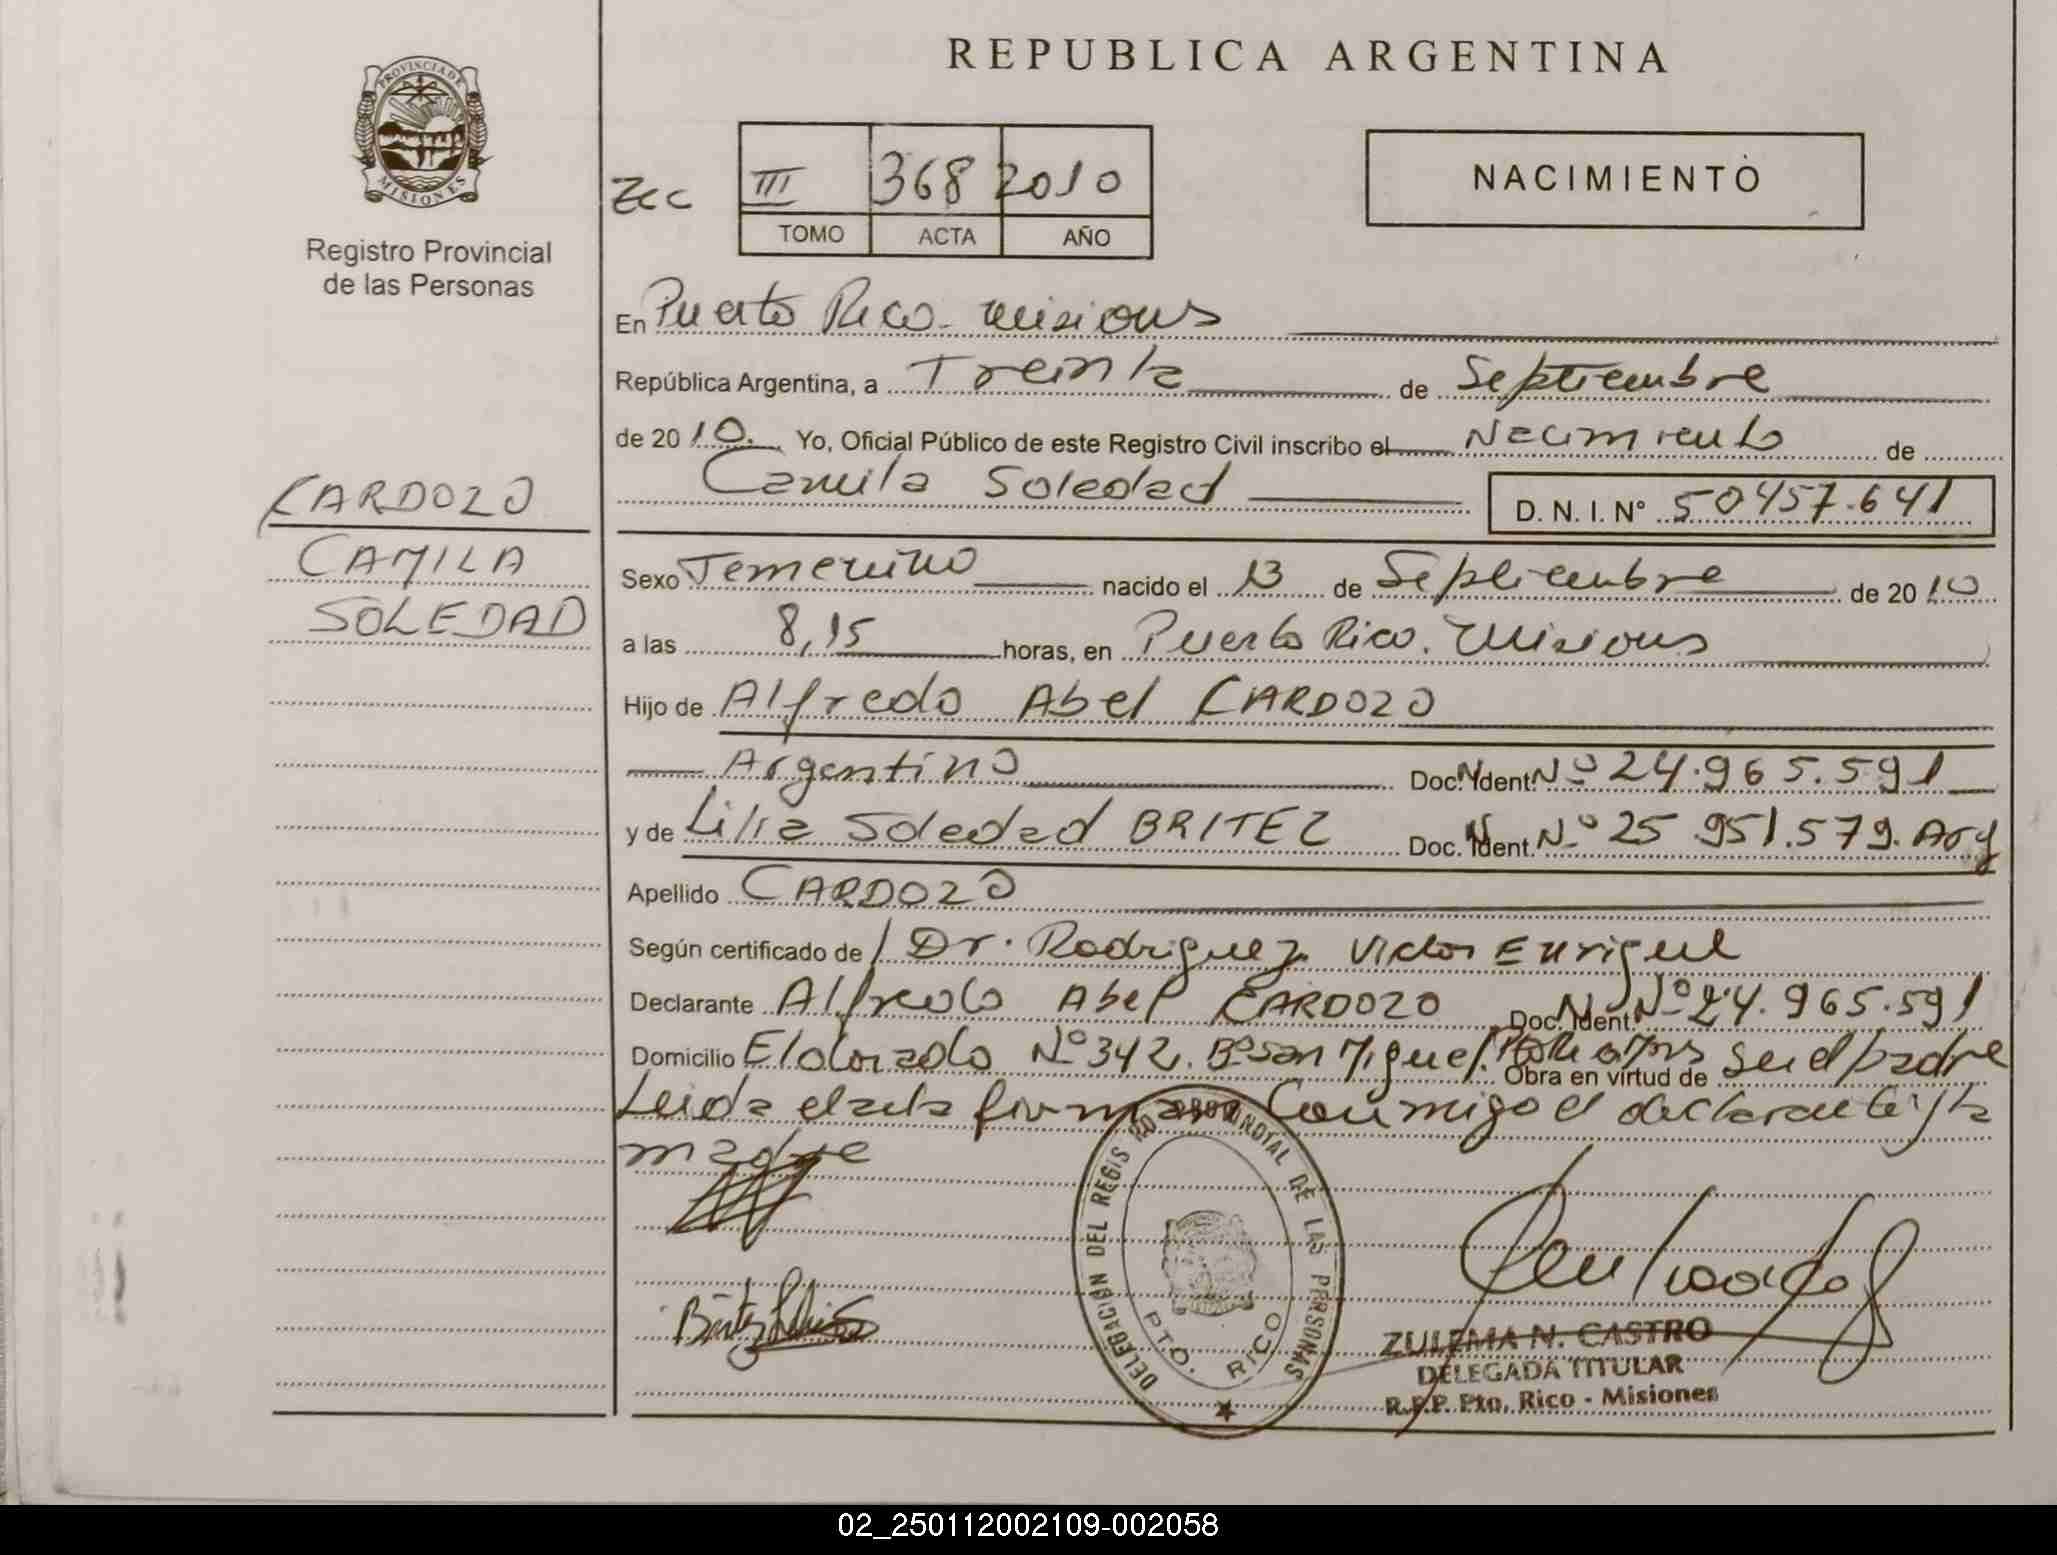 PROVINCIA DE
MISIONES
Registro Provincial
de las Personas
CARDOZO
CAMILA
SOLEDAD
REPUBLICA ARGENTINA
III 368 2010
TOMO ACTA AÑO
NACIMIENTO
En Puerto Rico. Misiones
República Argentina, a Treinta de Septiembre
de 2010. Yo, Oficial Público de este Registro Civil inscribo el Nacimiento de
Camila Soledad D. N. I. Nº 50457.641
Sexo Femenino nacido el 13 de Septiembre de 2010
a las 8,15 horas, en Puerto Rico. Misiones
Hijo de Alfredo Abel CARDOZO
Argentino Doc. Ident. Nº 24.965.591
y de Lilia Soledad BRITEZ Doc. Ident. Nº 25.951.579. Arg
Apellido CARDOZO
Según certificado de Dr. Rodriguez Victor Enrique
Declarante Alfredo Abel CARDOZO Doc. Ident. Nº 24.965.591
Domicilio Eldorado Nº 342. Bº San Miguel. Obra en virtud de Ser el padre
Leida el acta firman Conmigo el declarante y la
madre
DELEGACION DEL REGISTRO PROVINCIAL DE LAS PERSONAS
PTO. RICO
ZULEMA N. CASTRO
DELEGADA TITULAR
R.P.P. Pto. Rico - Misiones
02_250112002109-002058